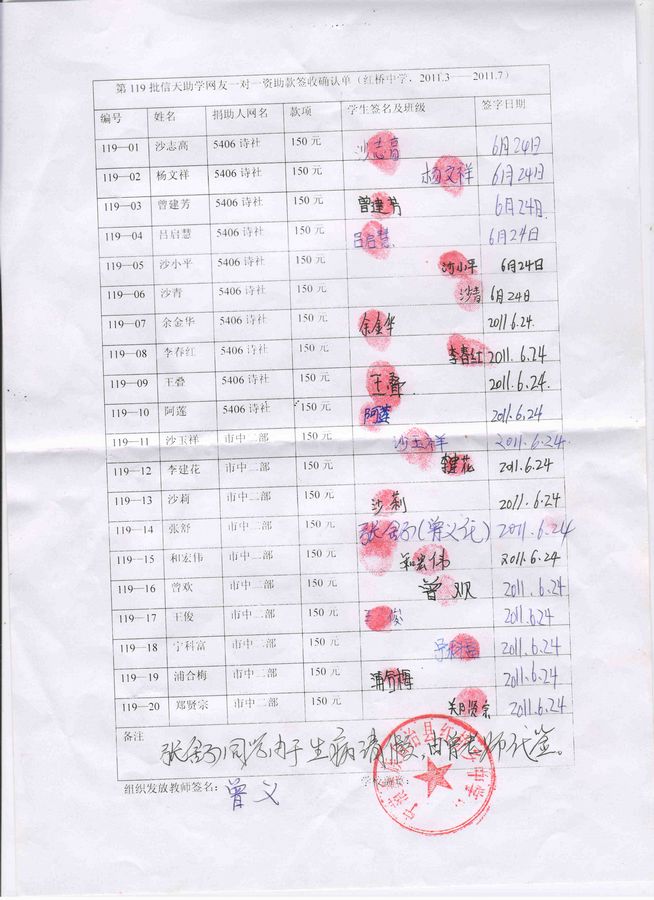 第119批信天助学网友一对一资助款签收确认单（红桥中学．2011.3——2011.7）
编号 姓名 捐助人网名 款项 学生签名及班级 签字日期
119—01 沙志高 5406诗社 150元 沙志高 6月24日
119—02 杨文祥 5406诗社 150元 杨文祥 6月24日
119—03 曾建芳 5406诗社 150元 曾建芳 6月24日.
119—04 吕启慧 5406诗社 150元 吕启慧. 6月24日
119—05 沙小平 5406诗社 150元 沙小平 6月24日
119—06 沙青 5406诗社 150元 沙青 6月24日
119—07 余金华 5406诗社 150元 余金华 2011.6.24.
119—08 李春红 5406诗社 150元 李春红 2011.6.24
119—09 王叠 5406诗社 150元 王叠. 2011.6.24.
119—10 阿莲 5406诗社 150元 阿莲 2011.6.24
119—11 沙玉祥 市中二部 150元 沙玉祥 2011.6.24.
119—12 李建花 市中二部 150元 李建花 2011.6.24
119—13 沙莉 市中二部 150元 沙莉 2011.6.24
119—14 张舒 市中二部 150元 张舒(曾义代) 2011.6.24
119—15 和宏伟 市中二部 150元 和宏伟 2011.6.24
119—16 曾欢 市中二部 150元 曾欢 2011.6.24
119—17 王俊 市中二部 150元 王俊 2011.6.24
119—18 宁科富 市中二部 150元 2011.6.24
119—19 浦合梅 市中二部 150元 浦合梅 2011.6.24
119—20 郑贤宗 市中二部 150元 郑贤宗 2011.6.24
备注
张舒同学由于生病请假，由曾老师代签。
组织发放教师签名： 曾义